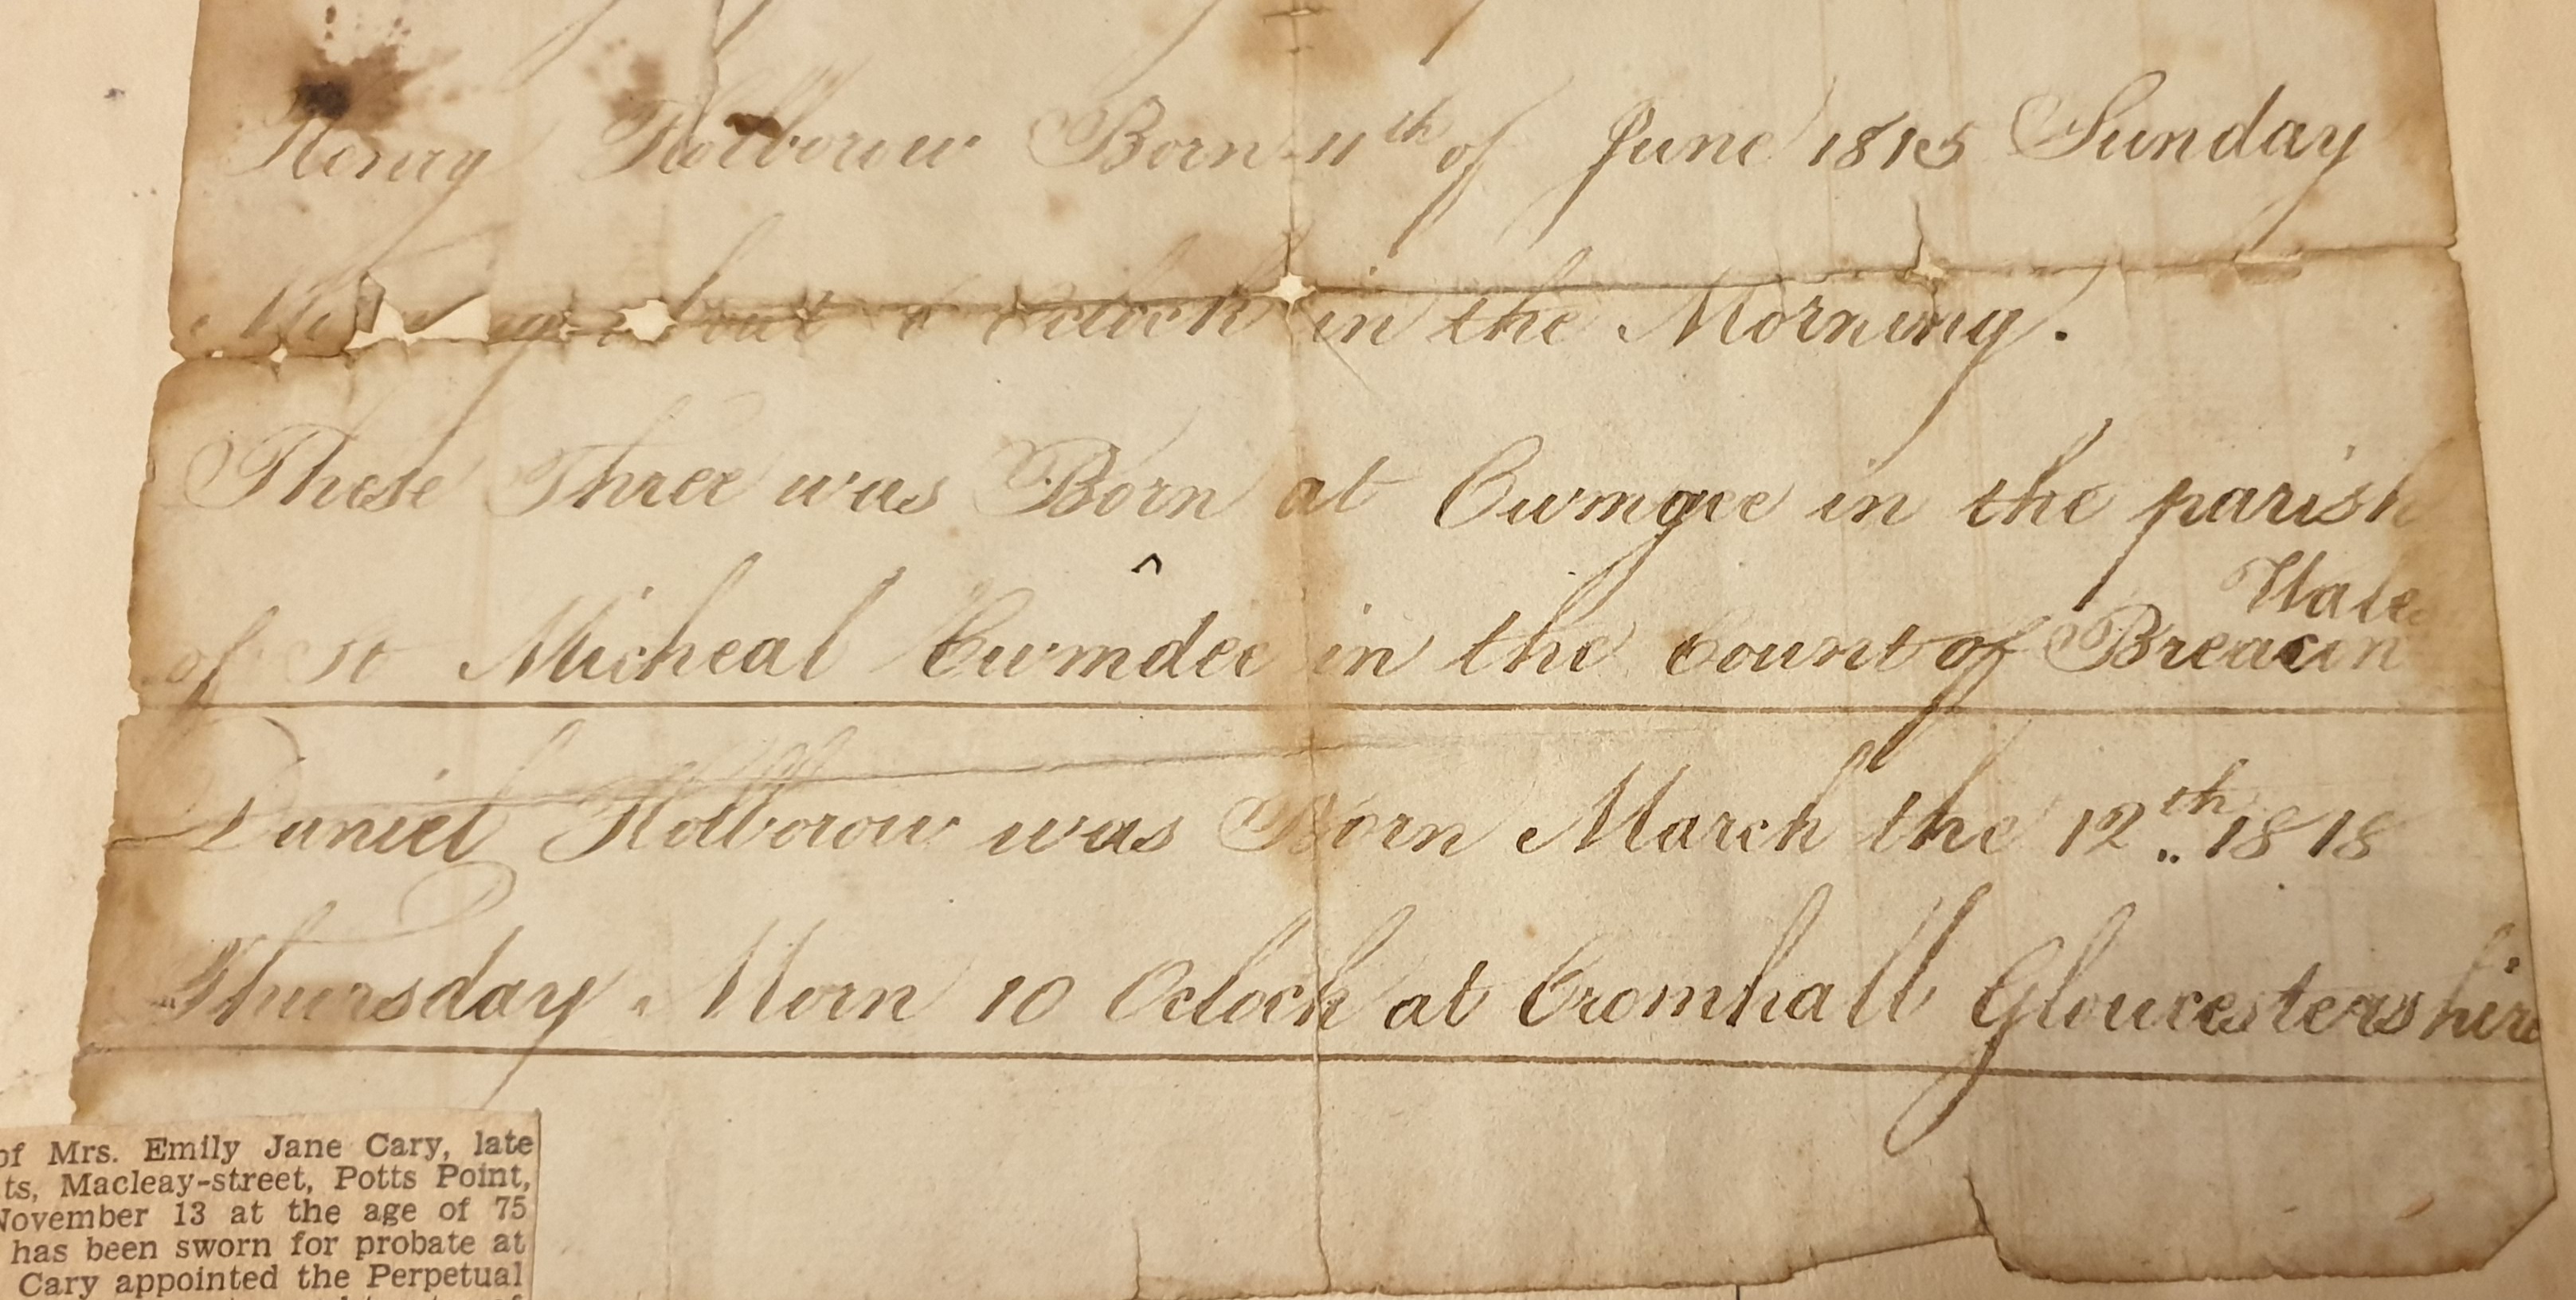 Henry Holborow Born 11th of June 1815 Sunday
Oclock in the Morning.
These Three was Born at Cwmgee in the parish
of St Micheal Cwmdee in the Count of Breacin
Wales
Daniel Holborow was Born March the 12th 1818
Thursday Morn 10 Oclock at Cromhall Gloucestershire
of Mrs. Emily Jane Cary, late
ts, Macleay-street, Potts Point,
November 13 at the age of 75
has been sworn for probate at
Cary appointed the Perpetual